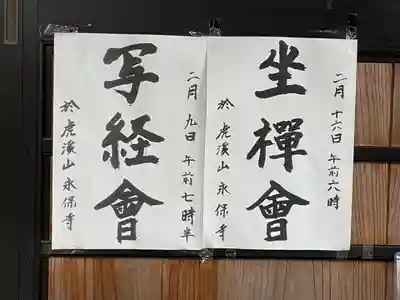 二月 十六日 午前六時
坐禪會
於 虎溪山永保寺
二月 九日 午前七時半
写経會
於 虎溪山永保寺